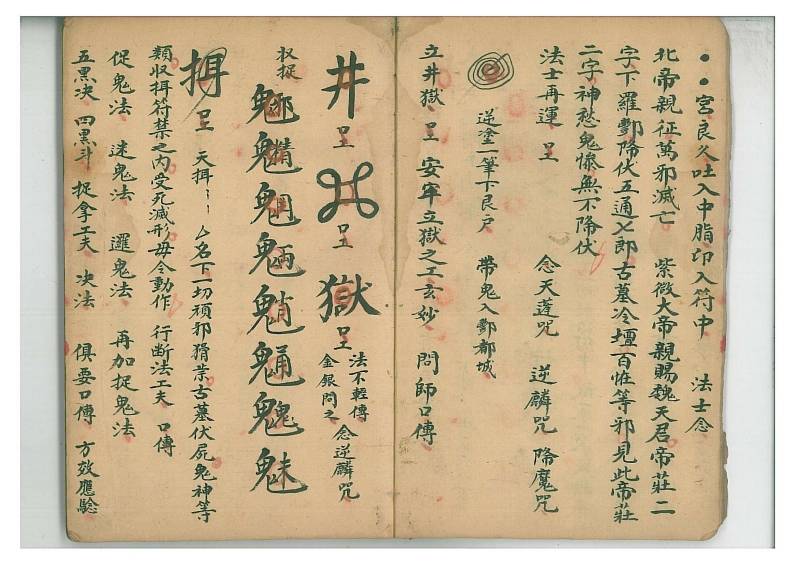 宮良久吐入中脂印入符中　法士念
北帝親征萬邪滅亡　紫微大帝親賜魏天君帝莊二
字下羅酆降伏五通七郎古墓冷壇百怪等邪見此帝莊
二字神愁鬼慘無不降伏
法士再運　呈　念天蓬咒　逆麟咒　降魔咒
逆塗一筆下艮戶　帶鬼入酆都城
立井獄　呈　安牢立獄之工玄妙　問師口傳
井　呈　呈　獄　呈　法不輕傳　念逆麟咒
金銀問之
収捉
魅
揖　呈　天揖ミミ　厶名下一切頑邪猾業古墓伏屍鬼神等
類収揖符禁之內受死滅形毋令動作　行斷法工夫　口傳
促鬼法　迷鬼法　邏鬼法　再加捉鬼法
五黑決　四黑斗　捉拿工夫　決法　俱要口傳　方效應驗